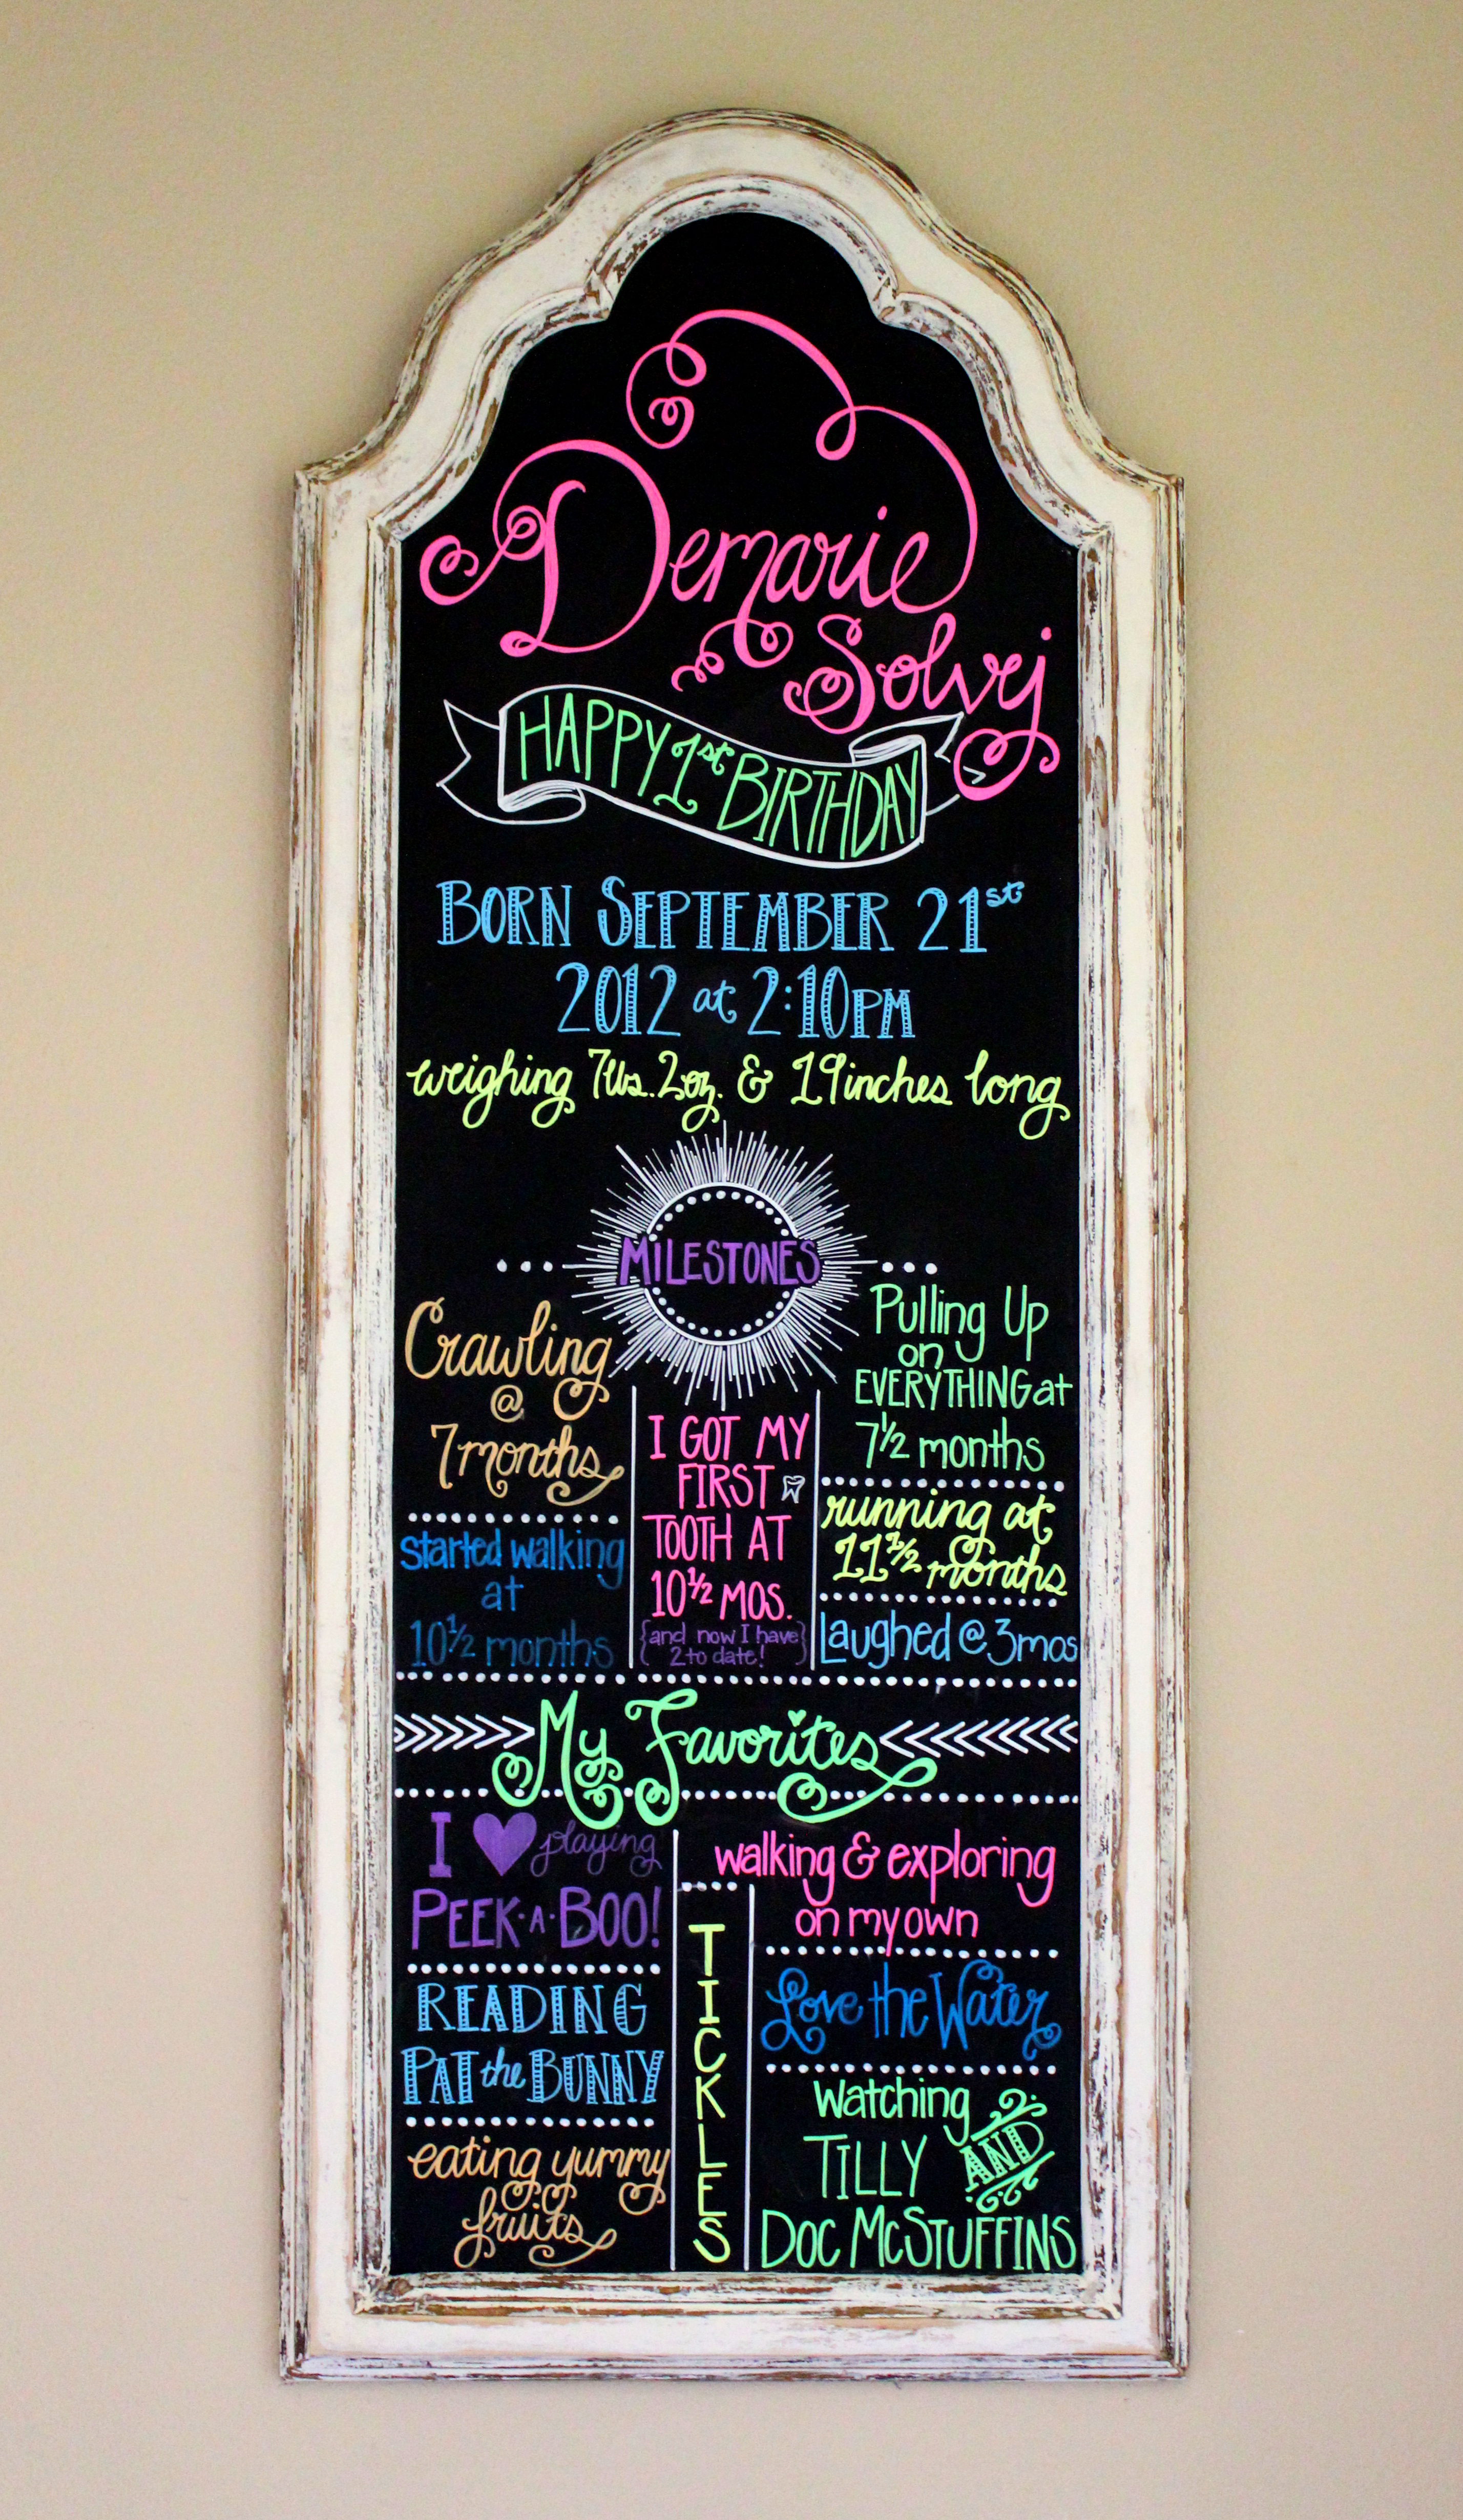 Demarie
Solvej
HAPPY 1st BIRTHDAY
BORN SEPTEMBER 21st
2012 at 2:10PM
weighing 7lbs. 2oz. & 19inches long
MILESTONES
Crawling
@
7months
started walking
at
10½ months
I GOT MY
FIRST
TOOTH AT
10½ MOS.
{and now I have
2 to date!}
Pulling Up
on
EVERYTHING at
7½ months
running at
11½ months
Laughed @ 3mos
My Favorites
I ♥ playing
PEEK·A·BOO!
READING
PAT the BUNNY
eating yummy
fruits
TICKLES
walking & exploring
on my own
Love the Water
Watching
TILLY AND
DOC McSTUFFINS